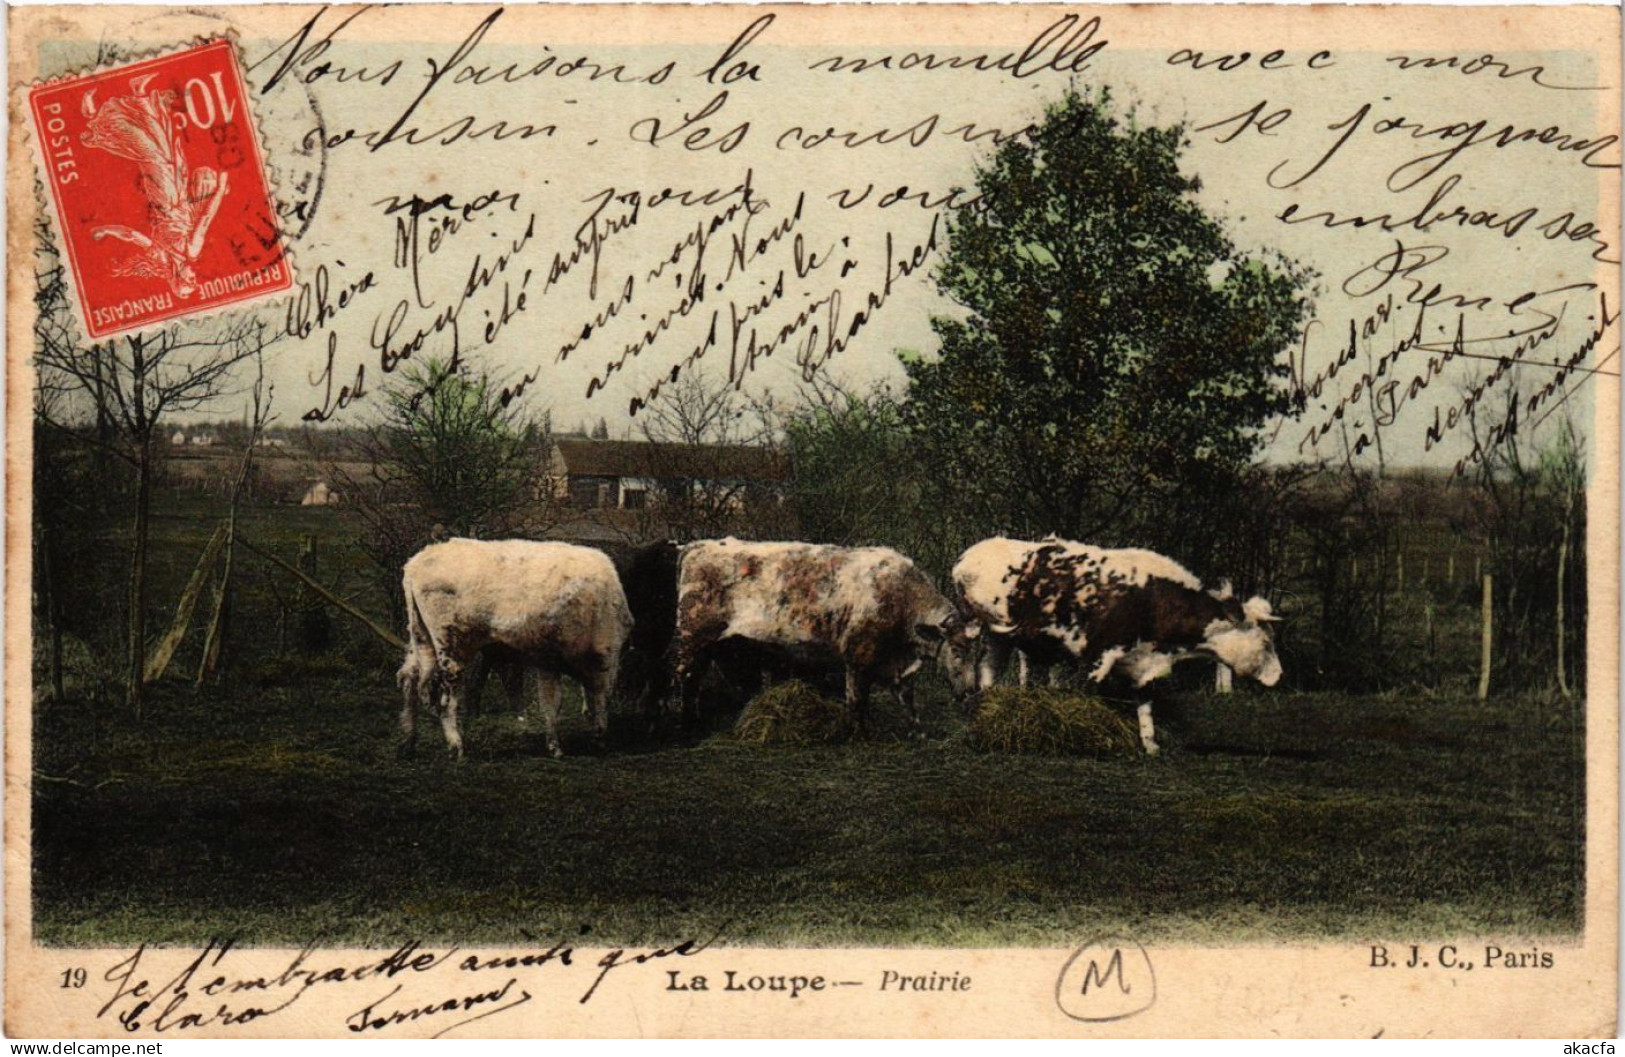 Nous faisons la manille avec mon
cousin. Les cousins se joignent
à moi pour vous embrasser
René
Chère Mère
Les Cousins
ont été surpris
en nous voyant
arrivés. Nous
avons pris le
train à
Chartres
Nous ar
riverons
à Paris
demain
vers minuit
10c
POSTES
REPUBLIQUE FRANÇAISE
19
Je t'embraitte ainsi que
Claro Fernand
La Loupe — Prairie
M
B. J. C., Paris
akacfa